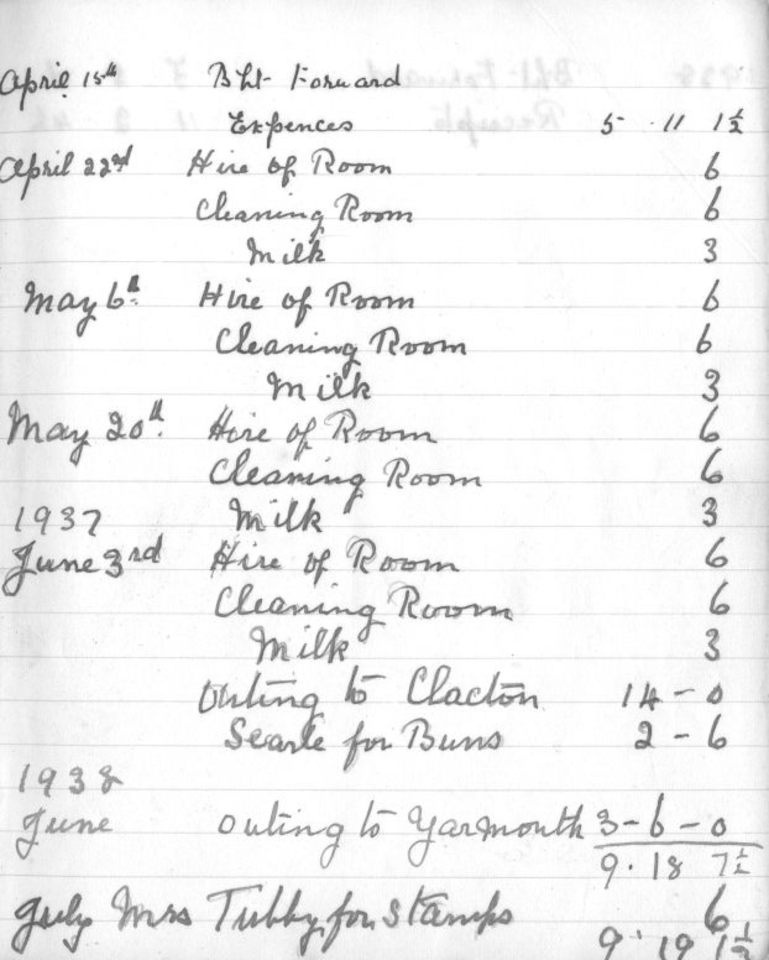 April 15th Bht Forward
Expences 5 . 11 1½
April 22nd Hire of Room 6
Cleaning Room 6
Milk 3
May 6th Hire of Room 6
Cleaning Room 6
Milk 3
May 20th Hire of Room 6
Cleaning Room 6
1937 Milk 3
June 3rd Hire of Room 6
Cleaning Room 6
Milk 3
Outing to Clacton 14 - 0
Searle for Buns 2 - 6
1938
June Outing to Yarmouth 3 - 6 - 0
9 . 18 7½
July Mrs Tubby for Stamps 6
9 . 19 1½